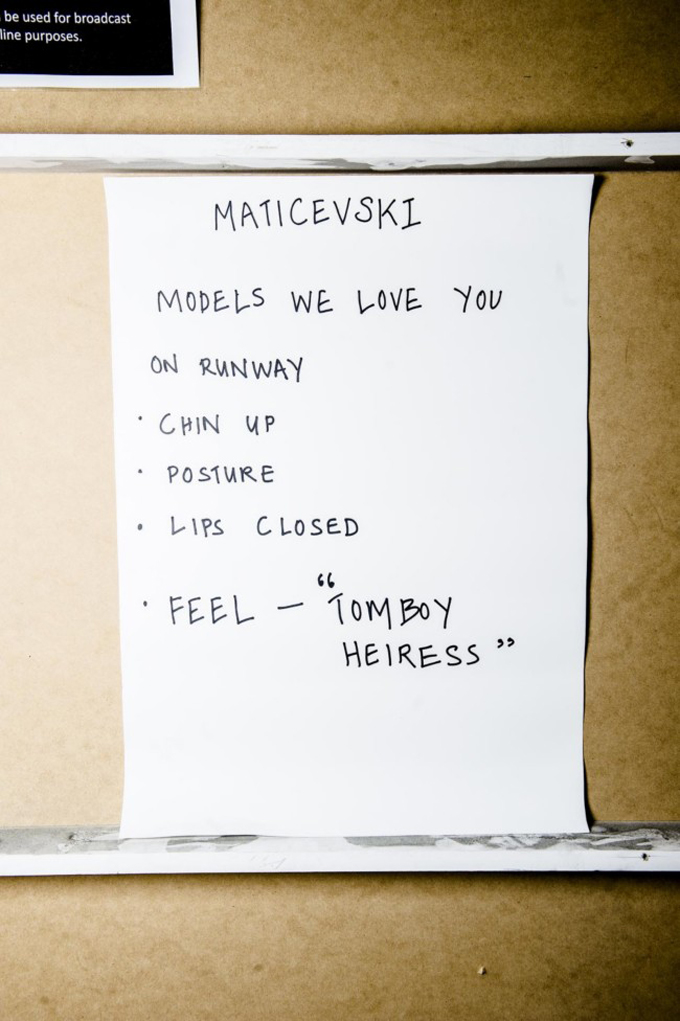 be used for broadcast
line purposes.
MATICEVSKI
MODELS WE LOVE YOU
ON RUNWAY
· CHIN UP
· POSTURE
· LIPS CLOSED
· FEEL — "TOMBOY
HEIRESS"